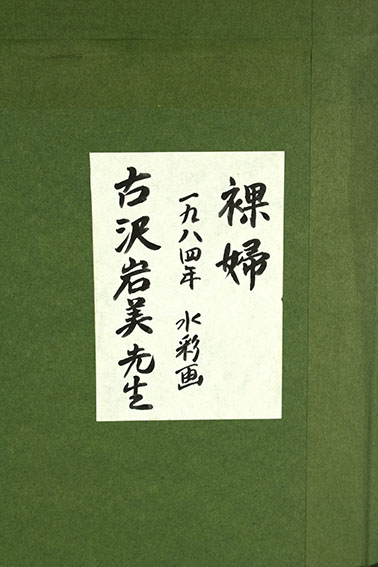 裸婦
一九八四年 水彩画
古沢岩美先生